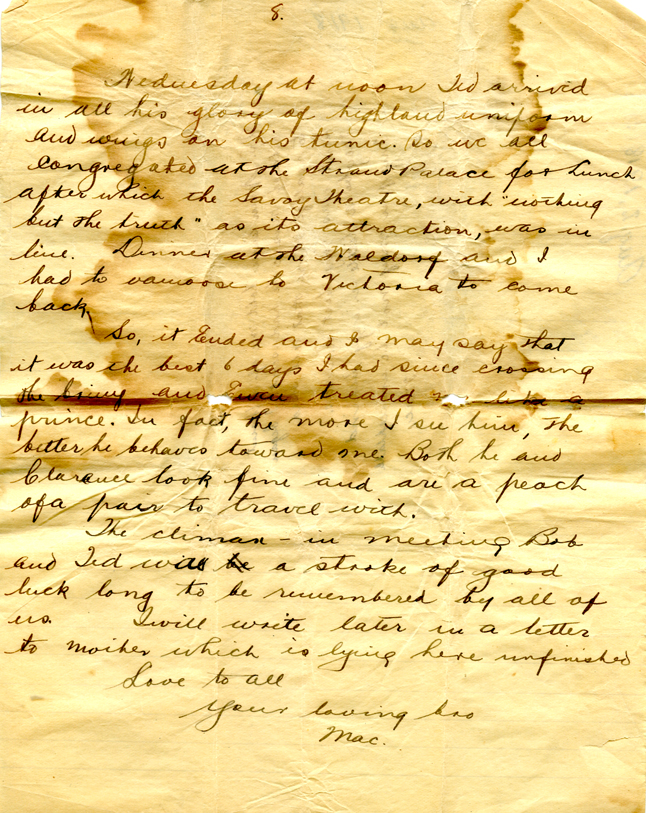 8.
Wednesday at noon Ted arrived
in all his glory of highland uniform
and wings on his tunic. So we all
congregated at the Strand Palace for Lunch
after which the Savoy Theatre, with "nothing
but the truth" as its attraction, was in
line. Dinner at the Waldorf and I
had to vamoose to Victoria to come
back.
So, it Ended and I may say that
it was the best 6 days I had since crossing
the briny and Ewen treated me like a
prince. In fact, the more I see him, the
better he behaves toward me. Both he and
Clarence look fine and are a peach
of a pair to travel with.
The climax - in meeting Bob
and Ted was a stroke of good
luck long to be remembered by all of
us. I will write later in a letter
to mother which is lying here unfinished
Love to all
Your loving bro
Mac.